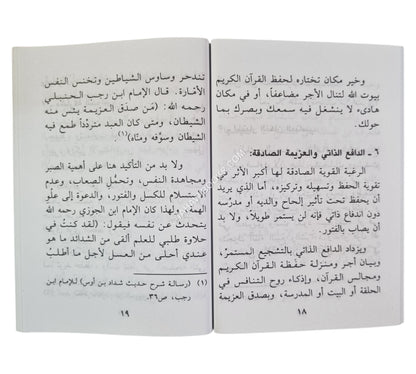 وخير مكان تختاره لحفظ القرآن الكريم
بيوت الله لتنال الأجر مضاعفاً، أو في مكان
هادىء لا ينشغل فيه سمعك وبصرك بما
حولك.
٦ ـ الدافع الذاتي والعزيمة الصادقة:
الرغبة القوية الصادقة لها أكبر الأثر في
تقوية الحفظ وتسهيله وتركيزه، أما الذي يريد
أن يحفظ تحت تأثير إلحاح والديه أو مدرّسه
دون اندفاع ذاتي فإنه لن يستمر طويلاً، ولا بد
أن يصاب بالفتور.
ويزداد الدافع الذاتي بالتشجيع المستمرّ،
وبيان أجر ومنزلة حفظة القرآن الكريم
ومجالس القرآن، وإذكاء روح التنافس في
الحلقة أو البيت أو المدرسة، وبصدق العزيمة
١٨
تندحر وساوس الشياطين وتخنس النفس
الأمارة. قال الإمام ابن رجب الحنبلي
رحمه الله: (مَن صدق العزيمة يئس منه
الشيطان، ومتى كان العبد متردّداً طمع فيه
الشيطان وسوَّفه ومنّاه)(١).
ولا بد من التأكيد هنا على أهمية الصبر
ومجاهدة النفس، وتحمُّل الصِعاب، وعدم
الاستسلام للكسل والفتور، والدعوة إلى علو
الهمة. ولهذا كان الإمام ابن الجوزي رحمه الله
يتحدث عن نفسه فيقول: (لقد كنتُ في
حلاوة طلبي للعلم ألقى من الشدائد ما هو
عندي أحلى من العسل لأجل ما أطلبُ
(١) (رسالة شرح حديث شداد بن أوس) للإمام ابن
رجب، ص٣٦.
١٩